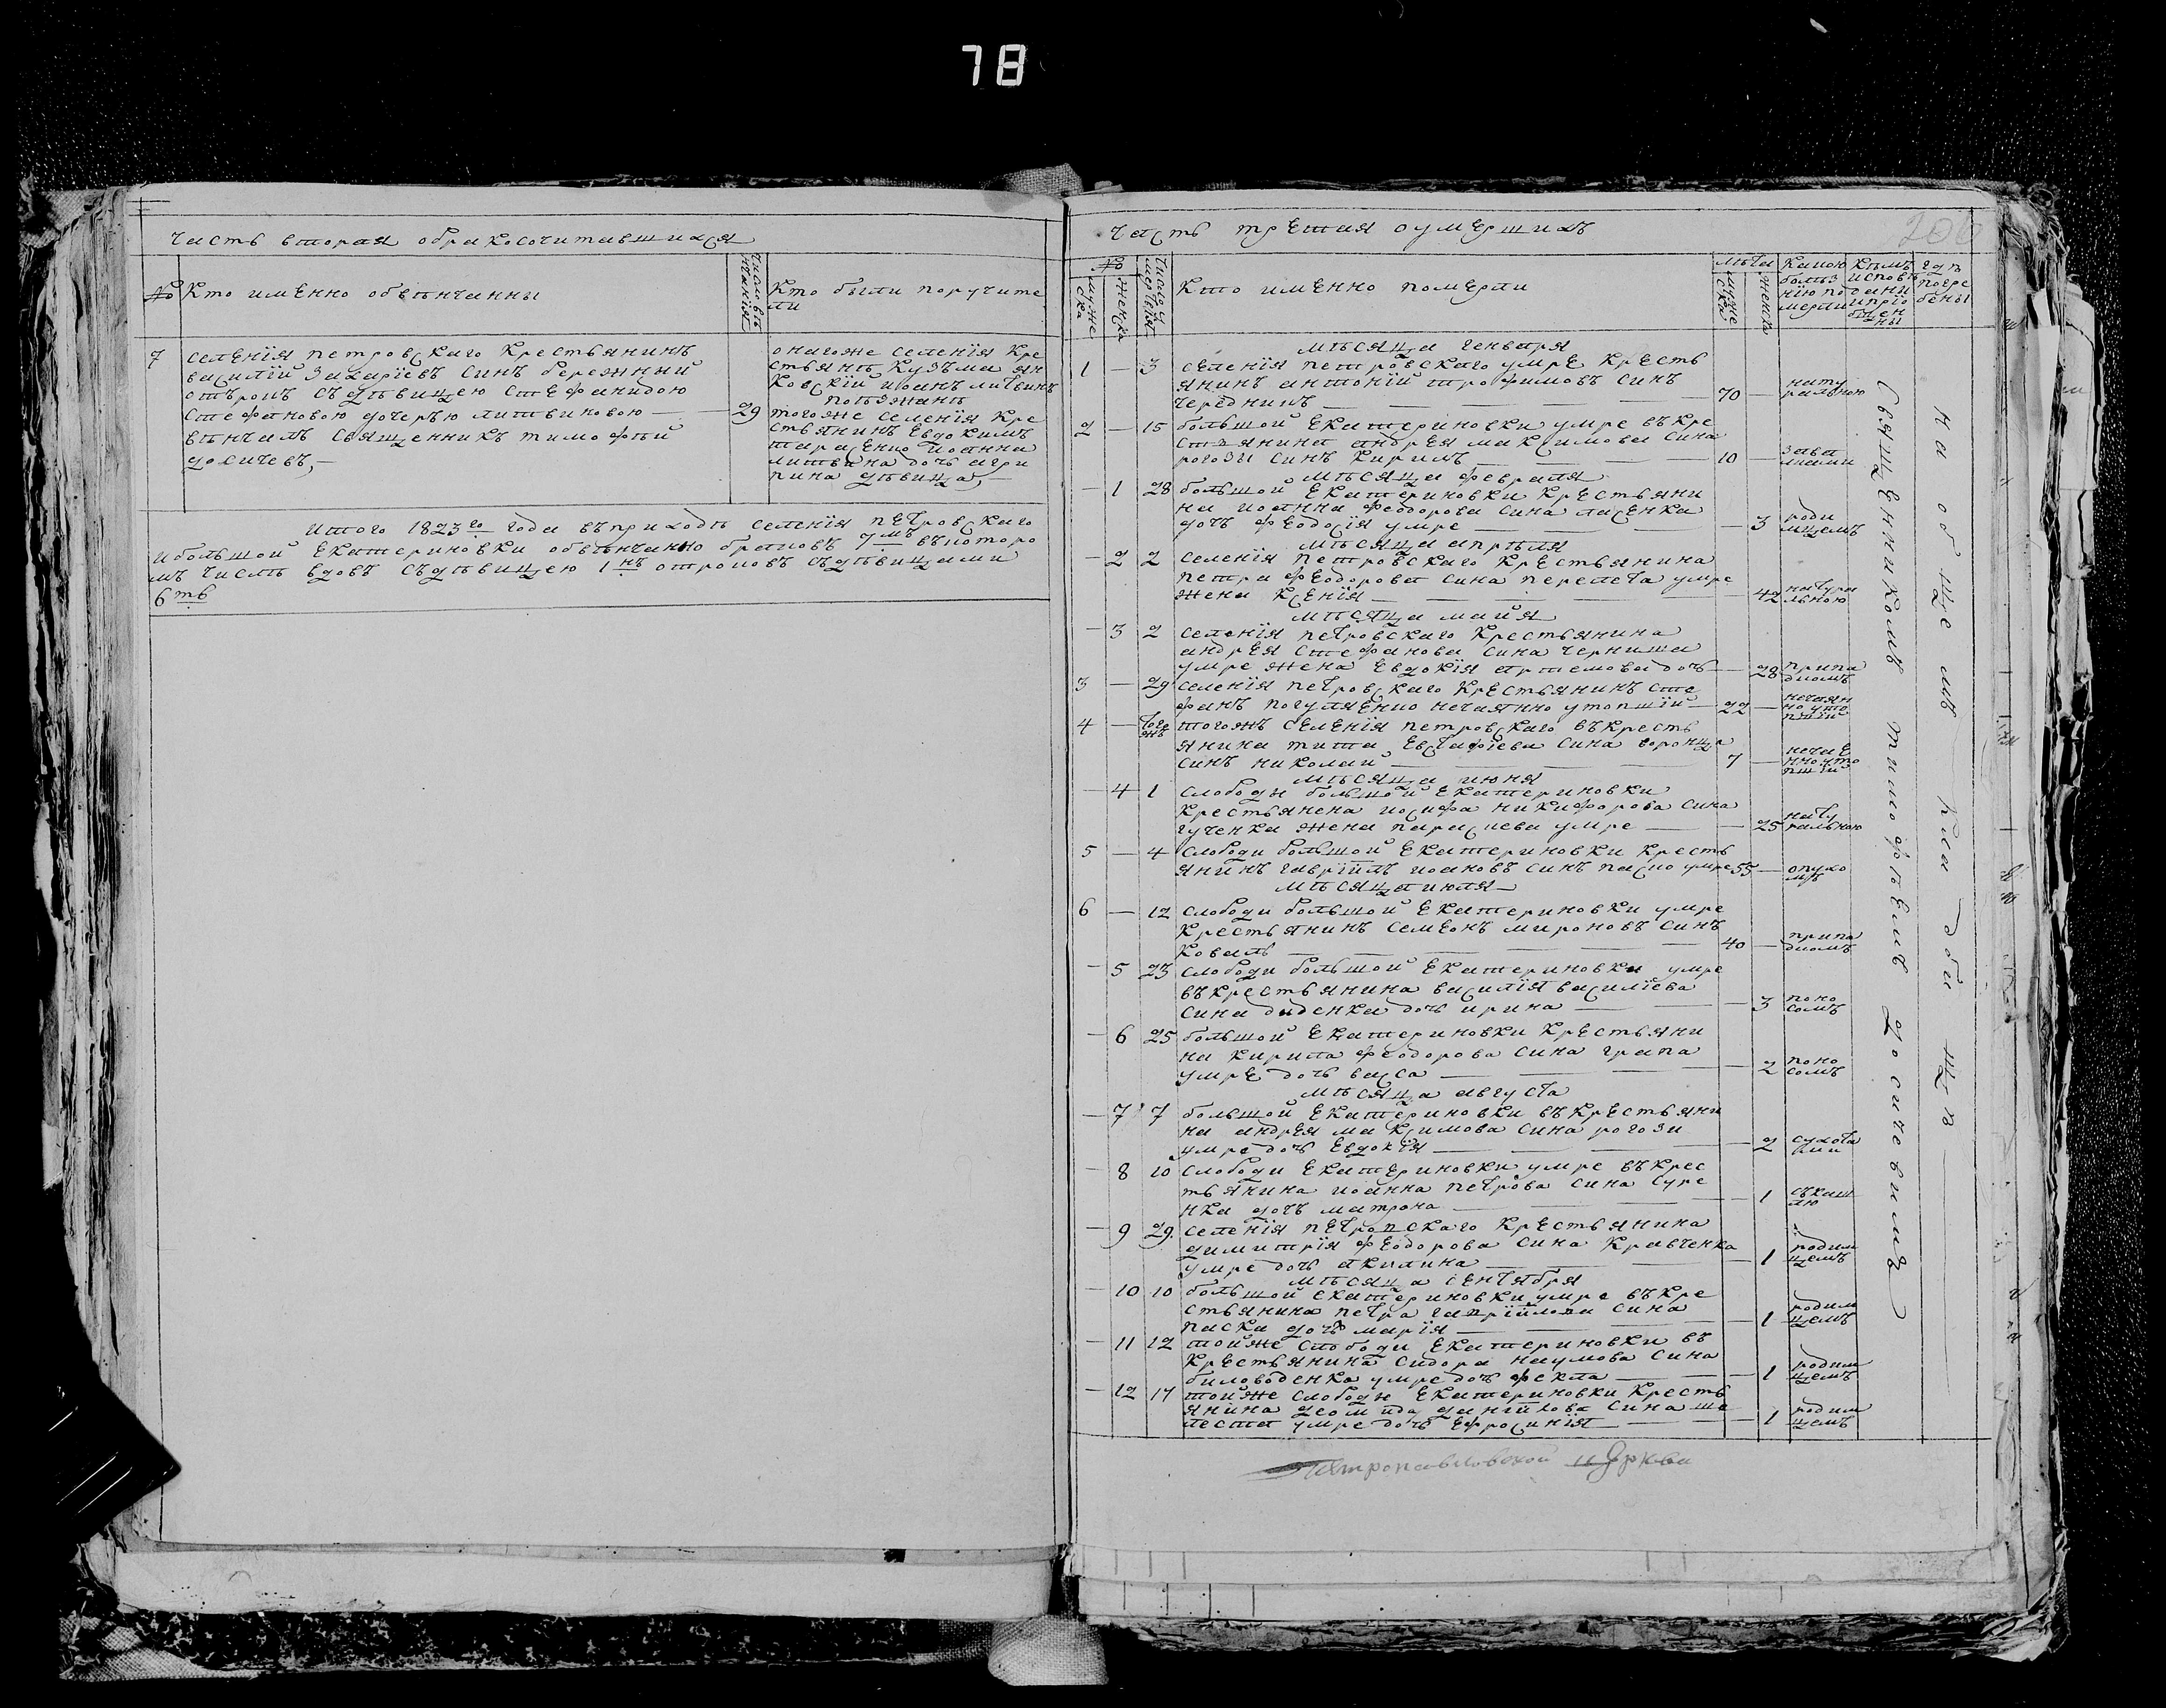 78
часть вторая обракосочитавшихся
№
Кто именно обвѣнчанны
число вѣнчания
Кто были поручите
ли
7
селенїя петровскаго Крестьянинъ
василїй Захарїевъ синъ бережный
отърокъ съдѣвицею стефанидою
стефановою дочерью литвиновою —
29
вѣнчалъ священникъ тимофѣй
досичевъ,—
онагоже селенїя Кре
стьянъ Кузьма ян
Ковскїй иоанъ литвинъ
поѣзжанъ
тогоже селенїя Кре
стьянинъ Евдокимъ
тарасенко иоанна
литвина дочь агри
пина дѣвица,—
итого 1823го года въприходѣ селенїя петровскаго
ибольшой Екатериновки обвѣнчанно браковъ 7мъ въкоторо
мъ числѣ вдовъ съдѣвицею 1нъ отроковъ съдѣвицами
6ть
часть третия оумершихъ
206
№
мужеска
женска
число умертвїя
Кто именно померли
лѣта
мужеска
женска
Какою
болѣз
нїю по
мерли
Кѣмъ
исповѣ
дани
ипрїо
бщен
ны
гдѣ
погре
бены
мѣсяца генваря
1 — 3 селенїя петровскаго умре Кресть
янинъ антонїй трофимовъ синъ
чередникъ — 70 — нату
ральною
2 — 15 большой Екатериновки умре въкре
стьянина андрея максимова сина
рогози синъ Кирилъ — 10 —
мѣсяца февраля
— 1 28 большой Екатериновки Крестьяни
на иоанна феодорова сина лисенка
дочъ феодосїя умре — 3 роди
мцемъ
мѣсяца апрѣля
— 2 2 селенїя петровскаго Крестьянина
петра феодорова сина перепеча умре
жена Ксенїя — 42 натура
льною
мѣсяца майя
— 3 2 селенїя петровскаго Крестьянина
андрея стефанова сина черниша
умре жена Евдокїя артемова дочь — 28 припа
дкомъ
3 — 29 селенїя петровскаго Крестьянинъ сте
фанъ погуляенко нечаянно утопшїй — 22 — нечаян
но уто
пшїй
4 — тогожъ селенїя петровскаго въкресть
янина тита Евстафїева сина воронца
синъ николай — 7 — нечая
нно уто
пшїй
мѣсяца июня
— 4 1 слободы большой Екатериновки
Крестьянена иосифа никифорова сина
гученка жена параскева умре — 25 нату
ральною
5 — 4 слободи большой Екатериновки Кресть
янинъ гаврїилъ иоановъ синъ паско умре 55 — опухо
мъ
мѣсяца июля —
6 — 12 слободи большой Екатериновки умре
Крестьянинъ семеонъ мироновъ синъ
Коваль — 40 — припа
дкомъ
— 5 23 слободи большой Екатериновки умре
въкрестьянина василїя василїева
сина диденка дочь ирина — 3 поно
сомъ
— 6 25 большой Екатериновки Крестьяни
на Кирила феодорова сина грапа
умре дочь васса — 2 поно
сомъ
мѣсяца августа
— 7 7 большой Екатериновки въкрестьяни
на андрея максимова сина рогози
умре дочь Евдокїя — 2 сухота
ми
— 8 10 слободи Екатериновки умре въкрес
тьянина иоанна петрова сина суре
нка дочъ матрона — 1 съкаш
лю
— 9 29 селенїя петровскаго Крестьянина
димитрїя феодорова сина Кравченка
умре дочь акилина — 1 родим
цемъ
мѣсяца сентября
— 10 10 большой екатериновки умре въкре
стьянина петра гаврїилова сина
паска дочъ марїя — 1 родим
цемъ
— 11 12 тойже слободи Екатериновки въ
Крестьянина сидора наумова сина
биловоденка умре дочь фекла — 1 родим
цемъ
— 12 17 тойже слободы Екатериновки Кресть
янина данїилова сина ше
леста умре дочь Ефросинїя — 1 родим
цемъ
Священникомъ тимофѣемъ досичевимъ
на общемъ кладбищѣ
Петропавловской церкви